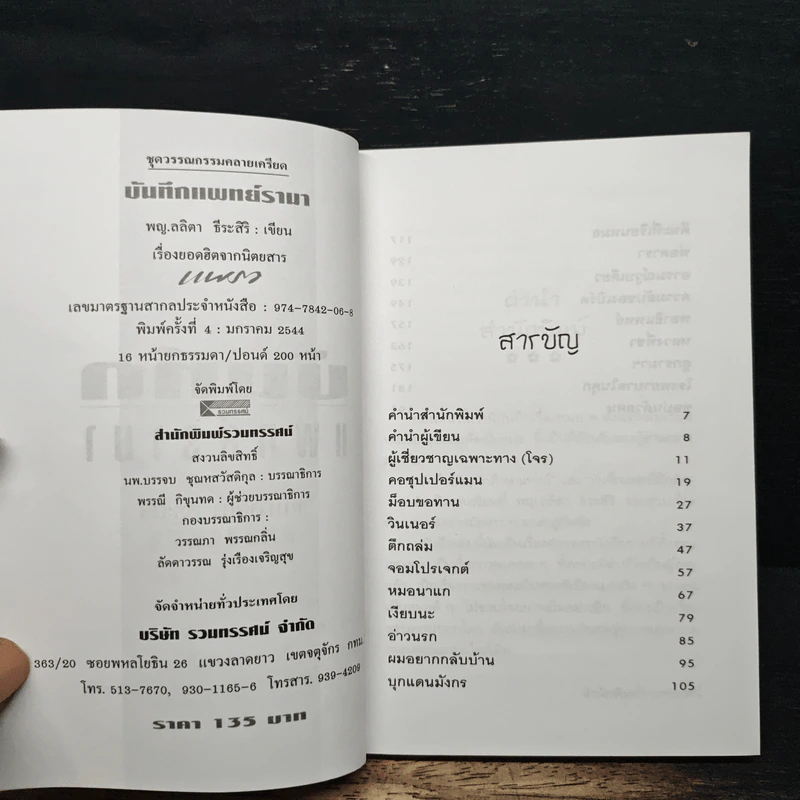 ชุดวรรณกรรมคลายเครียด
บันทึกแพทย์รามา
พญ.ลลิตา ธีระสิริ : เขียน
เรื่องยอดฮิตจากนิตยสาร
แพรว
เลขมาตรฐานสากลประจำหนังสือ : 974-7842-06-8
พิมพ์ครั้งที่ 4 : มกราคม 2544
16 หน้ายกธรรมดา/ปอนด์ 200 หน้า
จัดพิมพ์โดย
รวมทรรศน์
สำนักพิมพ์รวมทรรศน์
สงวนลิขสิทธิ์
นพ.บรรจบ ชุณหสวัสดิกุล : บรรณาธิการ
พรรณี กิขุนทด : ผู้ช่วยบรรณาธิการ
กองบรรณาธิการ :
วรรณภา พรรณกลิ่น
ลัดดาวรรณ รุ่งเรืองเจริญสุข
จัดจำหน่ายทั่วประเทศโดย
บริษัท รวมทรรศน์ จำกัด
363/20 ซอยพหลโยธิน 26 แขวงลาดยาว เขตจตุจักร กทม.
โทร. 513-7670, 930-1165-6 โทรสาร. 939-4209
ราคา 135 บาท
สารบัญ
คำนำสำนักพิมพ์ 7
คำนำผู้เขียน 8
ผู้เชี่ยวชาญเฉพาะทาง (โจร) 11
คอซุปเปอร์แมน 19
ม็อบขอทาน 27
วินเนอร์ 37
ตึกถล่ม 47
จอมโปรเจกต์ 57
หมอนาแก 67
เงียบนะ 79
อ่าวนรก 85
ผมอยากกลับบ้าน 95
บุกแดนมังกร 105